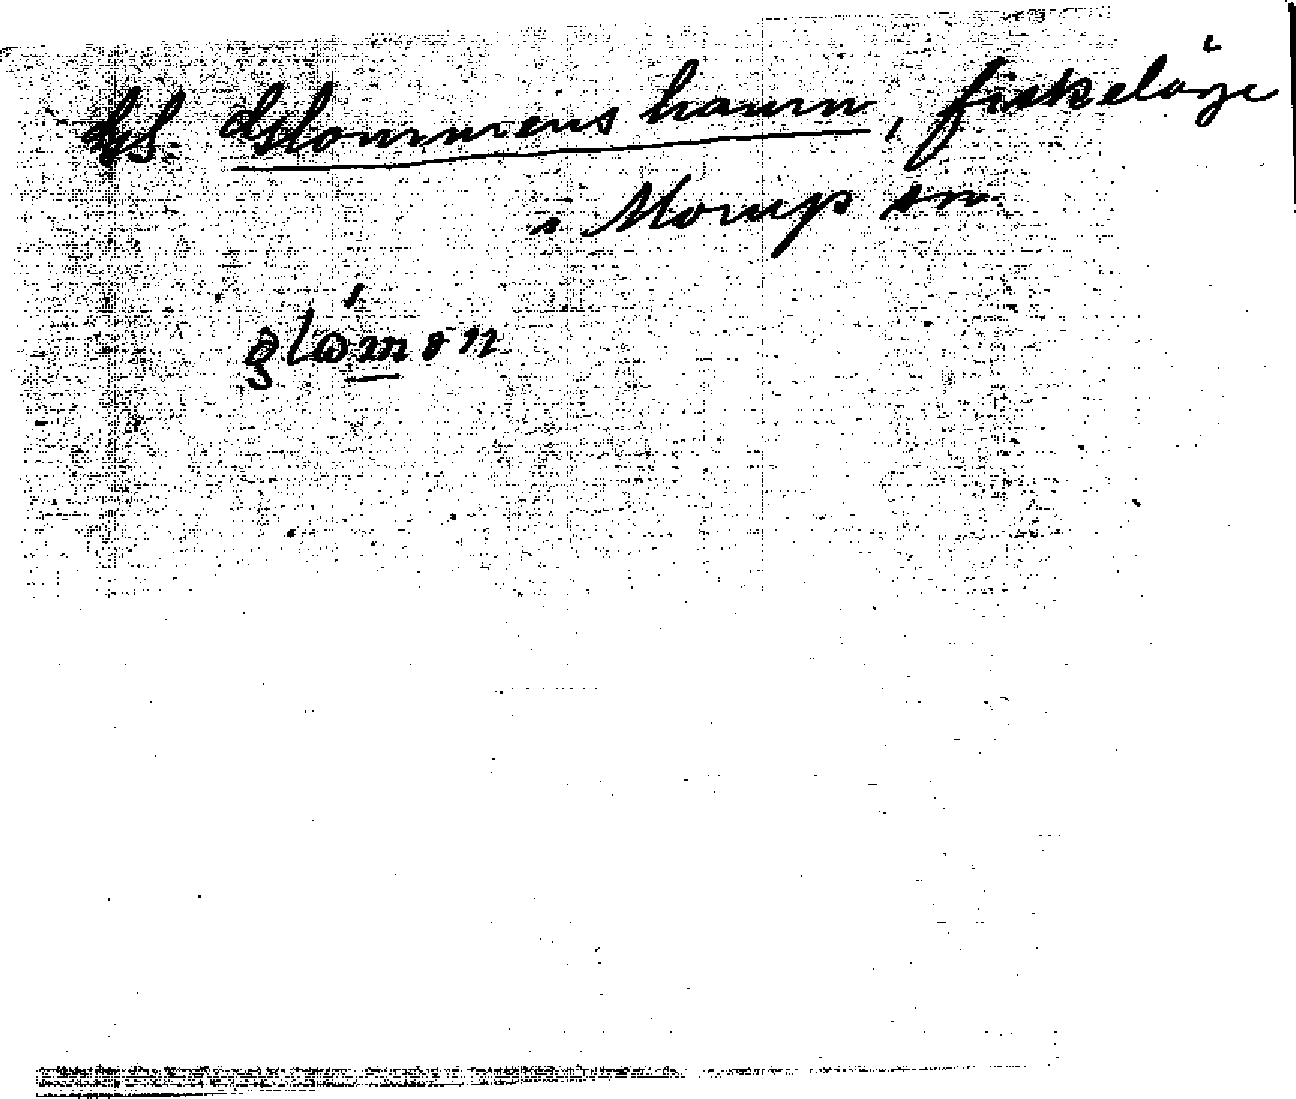 Glommens hamn, fiskeläge
i Morup sn
glωmən